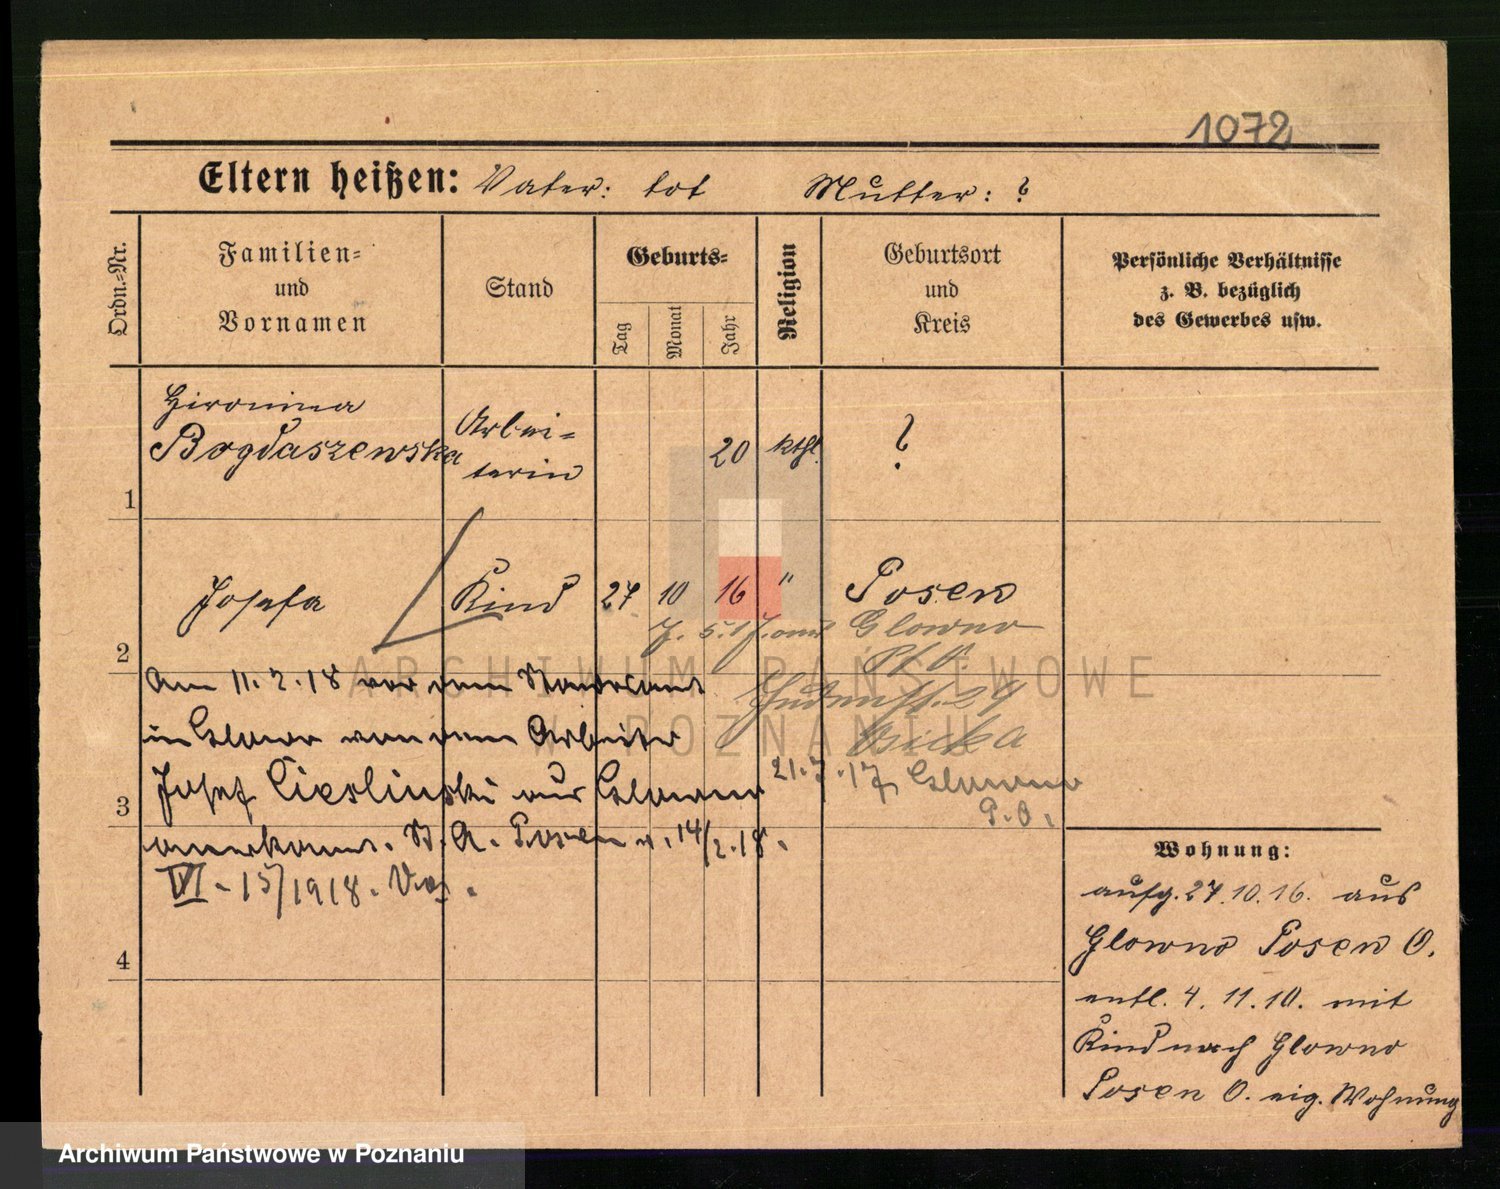 1072
Eltern heißen: Vater: tot Mutter: ?
Ordn.-Nr.
Familien-
und
Vornamen
Stand
Geburts-
Tag
Monat
Jahr
Religion
Geburtsort
und
Kreis
Persönliche Verhältnisse
z. B. bezüglich
des Gewerbes usw.
1
Hironima
Bogdaszewska
Arbei-
terin
20
kthl.
?
2
Josefa
Kind
27 10 16 "
Posen
Glowno
Am 11.2.18 vor dem Standesamt
in Glowno von dem Arbeiter
3
Josef Cieslinski aus Glowno
anerkannt. St. A. Posen v. 14/2.18.
VI - 15/1918.
21.7.17 Glowno
P. O.
4
Wohnung:
aufg. 27.10.16. aus
Glowno Posen O.
entl. 4. 11. 10. mit
Kind nach Glowno
Posen O. eig. Wohnung
ARCHIWUM PAŃSTWOWE
W POZNANIU
Archiwum Państwowe w Poznaniu